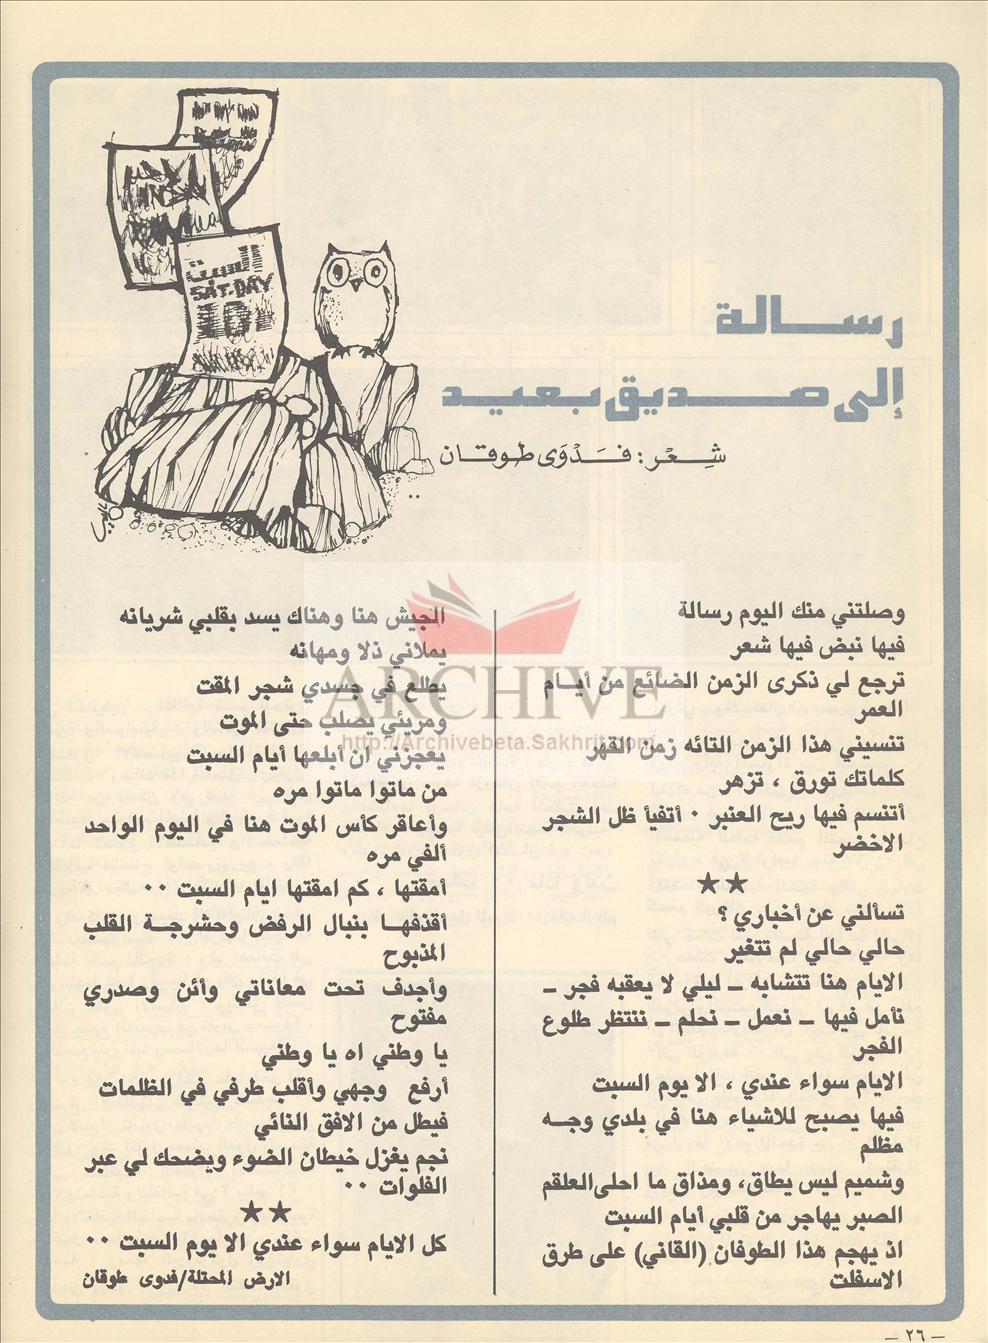 السبت
SAT.DAY
10
رسالة
إلى صديق بعيد
شعر: فدوى طوقان
وصلتني منك اليوم رسالة
فيها نبض فيها شعر
ترجع لي ذكرى الزمن الضائع من أيام
العمر
تنسيني هذا الزمن التائه زمن القهر
كلماتك تورق ، تزهر
أتنسم فيها ريح العنبر ٠ أتفيأ ظل الشجر
الاخضر
★★
تسألني عن أخباري ؟
حالي حالي لم تتغير
الايام هنا تتشابه ــ ليلي لا يعقبه فجر ــ
نأمل فيها ــ نعمل ــ نحلم ــ ننتظر طلوع
الفجر
الايام سواء عندي ، الا يوم السبت
فيها يصبح للاشياء هنا في بلدي وجه
مظلم
وشميم ليس يطاق، ومذاق ما احلى العلقم
الصبر يهاجر من قلبي أيام السبت
اذ يهجم هذا الطوفان (القاني) على طرق
الاسفلت
الجيش هنا وهناك يسد بقلبي شريانه
يملاني ذلا ومهانه
يطلع في جسدي شجر المقت
ومريئي يصلب حتى الموت
يعجزني ان أبلعها أيام السبت
من ماتوا ماتوا مره
وأعاقر كأس الموت هنا في اليوم الواحد
ألفي مره
أمقتها ، كم امقتها ايام السبت ٠٠
أقذفها بنبال الرفض وحشرجة القلب
المذبوح
وأجدف تحت معاناتي وأئن وصدري
مفتوح
يا وطني اه يا وطني
أرفع وجهي وأقلب طرفي في الظلمات
فيطل من الافق النائي
نجم يغزل خيطان الضوء ويضحك لي عبر
الفلوات ٠٠
★★
كل الايام سواء عندي الا يوم السبت ٠٠
الارض المحتلة/فدوى طوقان
ARCHIVE
http://Archivebeta.Sakhrit.com
ــ ٢٦ ــ